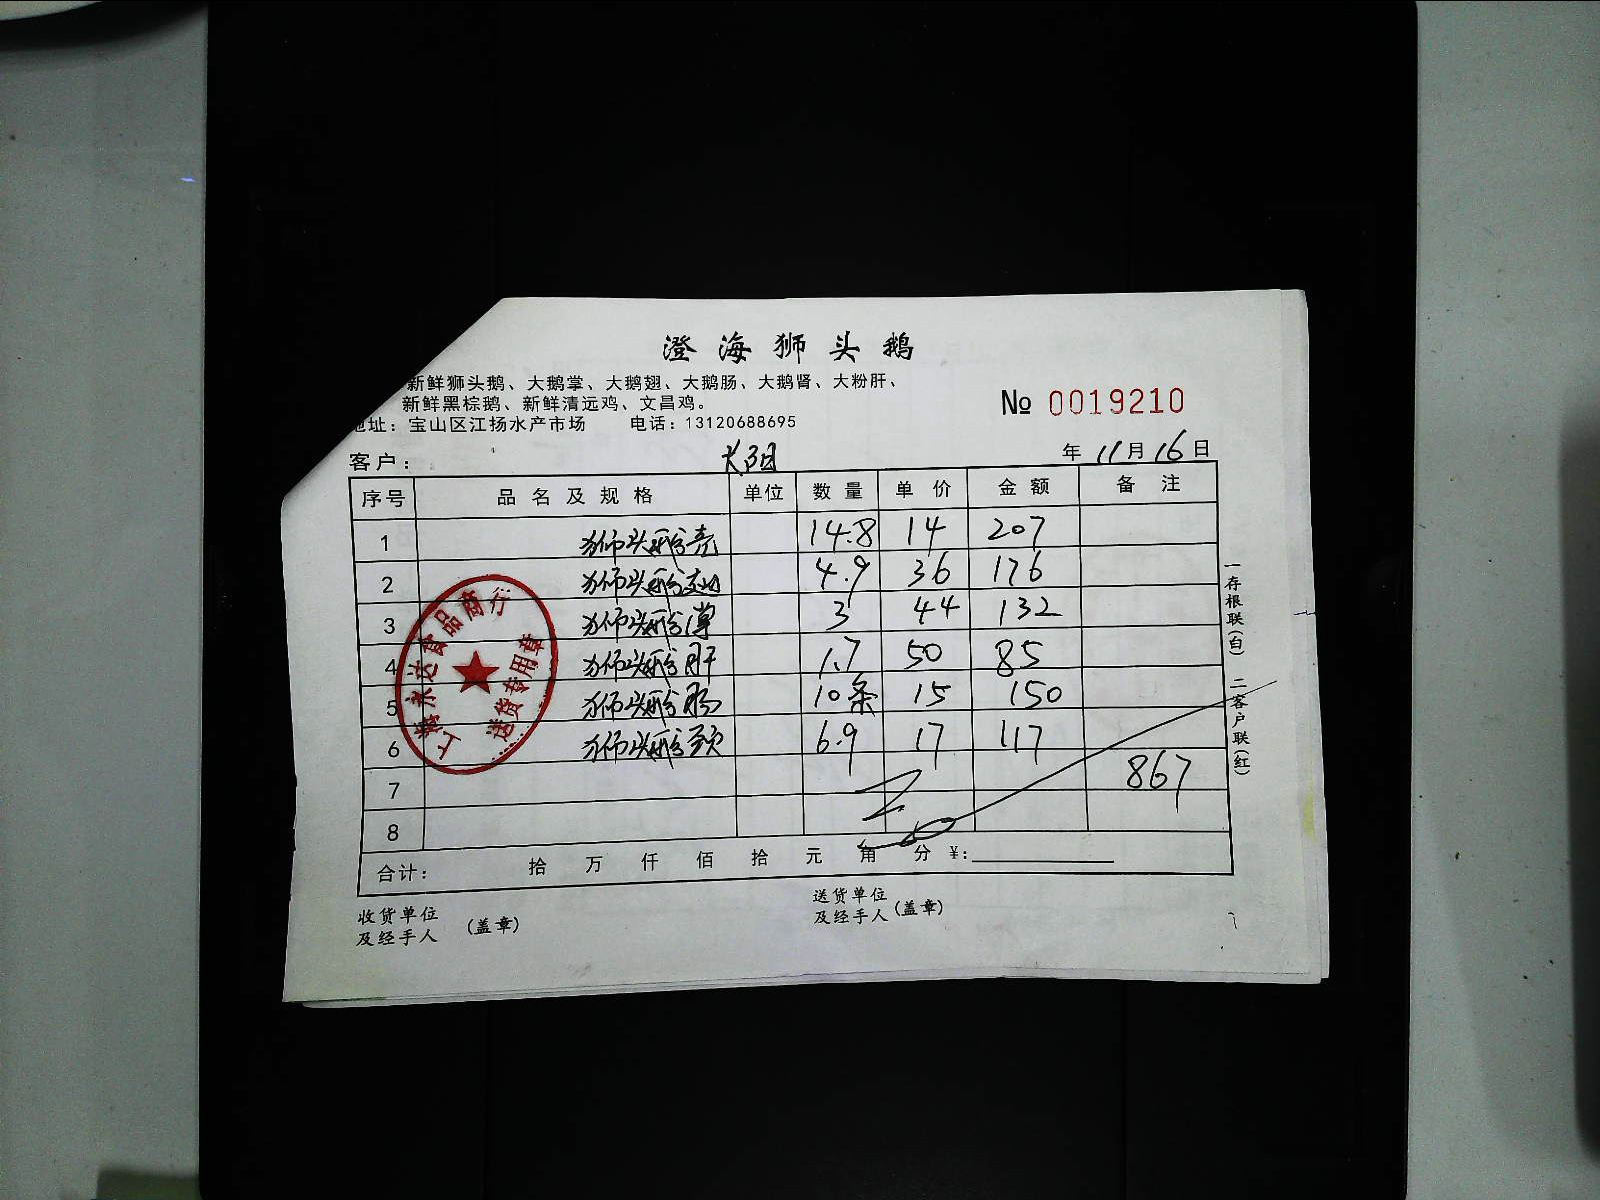 澄海狮头鹅
新鲜狮头鹅、大鹅掌、大鹅翅、大鹅肠、大鹅肾、大粉肝、
新鲜黑棕鹅、新鲜清远鸡、文昌鸡。
No 0019210
地址：宝山区江扬水产市场 电话：13120688695
客户： 年 11 月 16 日
序号 品名及规格 单位 数量 单价 金额 备注
1 狮头鹅壳 14.8 14 207
2 狮头鹅翅 4.9 36 176
3 狮头鹅掌 3 44 132
4 狮头鹅肝 1.7 50 85
5 狮头鹅肠 10条 15 150
6 狮头鹅颈 6.9 17 117
7 867
8
合计： 拾 万 仟 佰 拾 元 角 分 ¥：
收货单位
及经手人 （盖章）
送货单位
及经手人（盖章）
一存根联（白） 二客户联（红）
永达食品商行
送货专用章